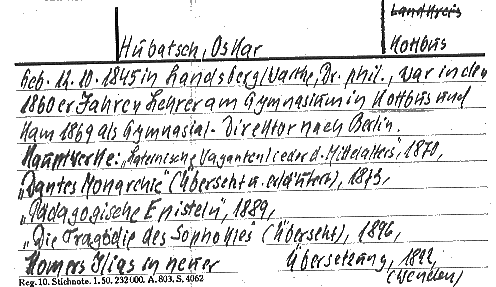 Landkreis
Hubatsch, Oskar
Kottbus
Geb. 12.10.1845 in Landsberg/Warthe, Dr. phil., war in den
1860er Jahren Lehrer am Gymnasium in Kottbus und
kam 1869 als Gymnasial-Direktor nach Berlin.
Hauptwerke: "Lateinische Vagantenlieder d. Mittelalters", 1870,
"Dantes Monarchie" (Übersetzt u. erläutert), 1873,
"Pädagogische Episteln", 1889,
"Die Tragödie des Sophokles" (Übersetzt), 1896,
Homers Ilias in neuer Übersetzung, 1892,
(Wenden)
Reg. 10. Stichnote. 1. 50. 232000. A. 803. S. 4062